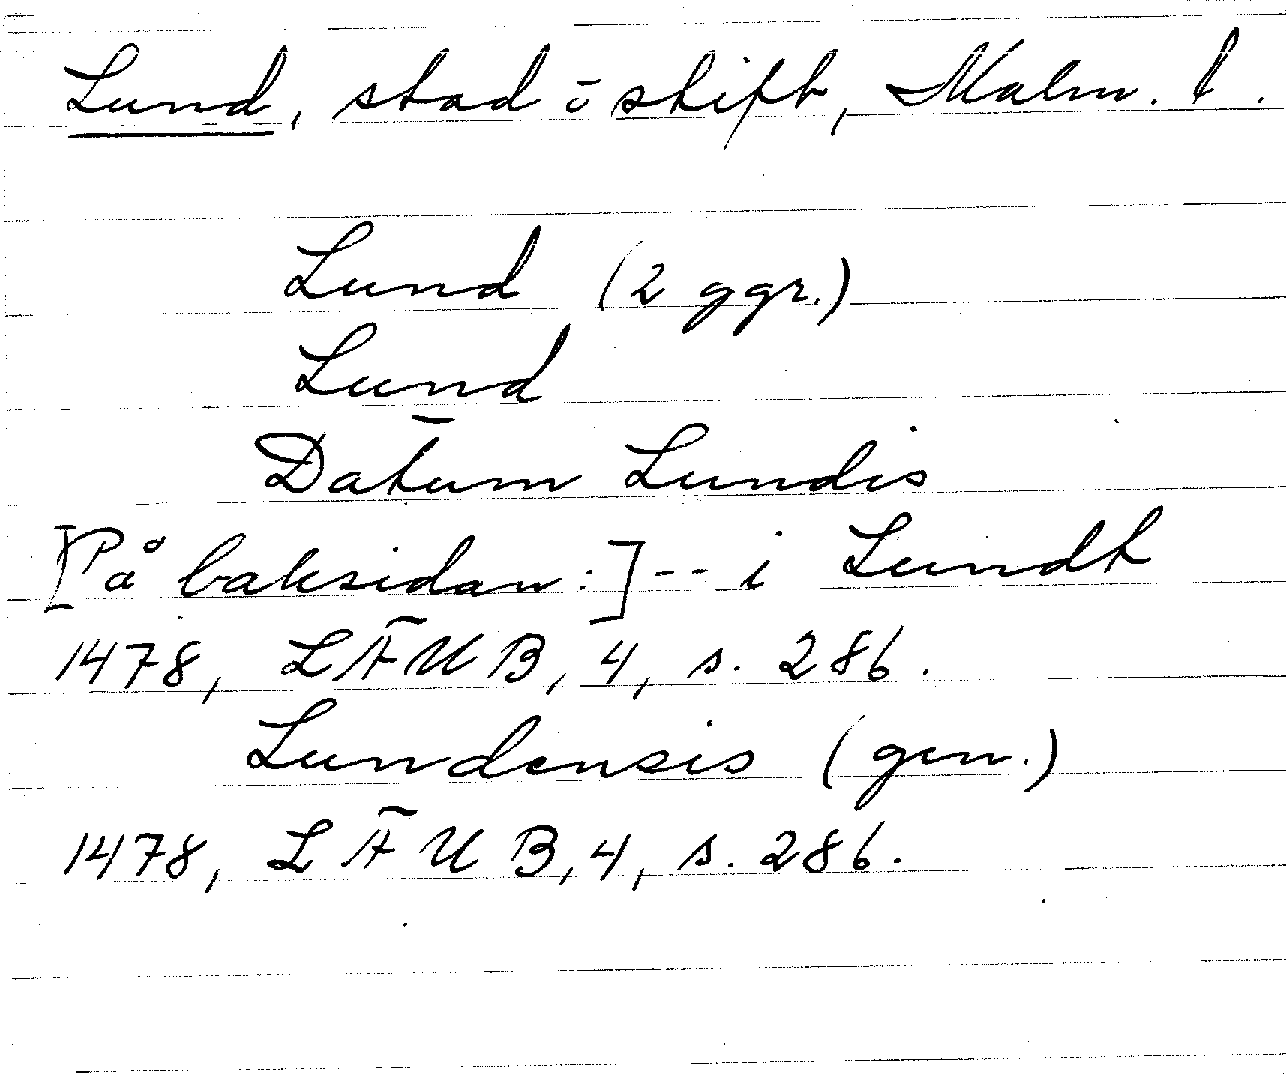 Lund, stad ō skift, Malm. l.
Lund (2 ggr.)
Lund
Datum Lundis
[På baksidan:] -- i Lundh
1478, LÄUB, 4, s. 286.
Lundensis (gen.)
1478, LÄUB, 4, s. 286.